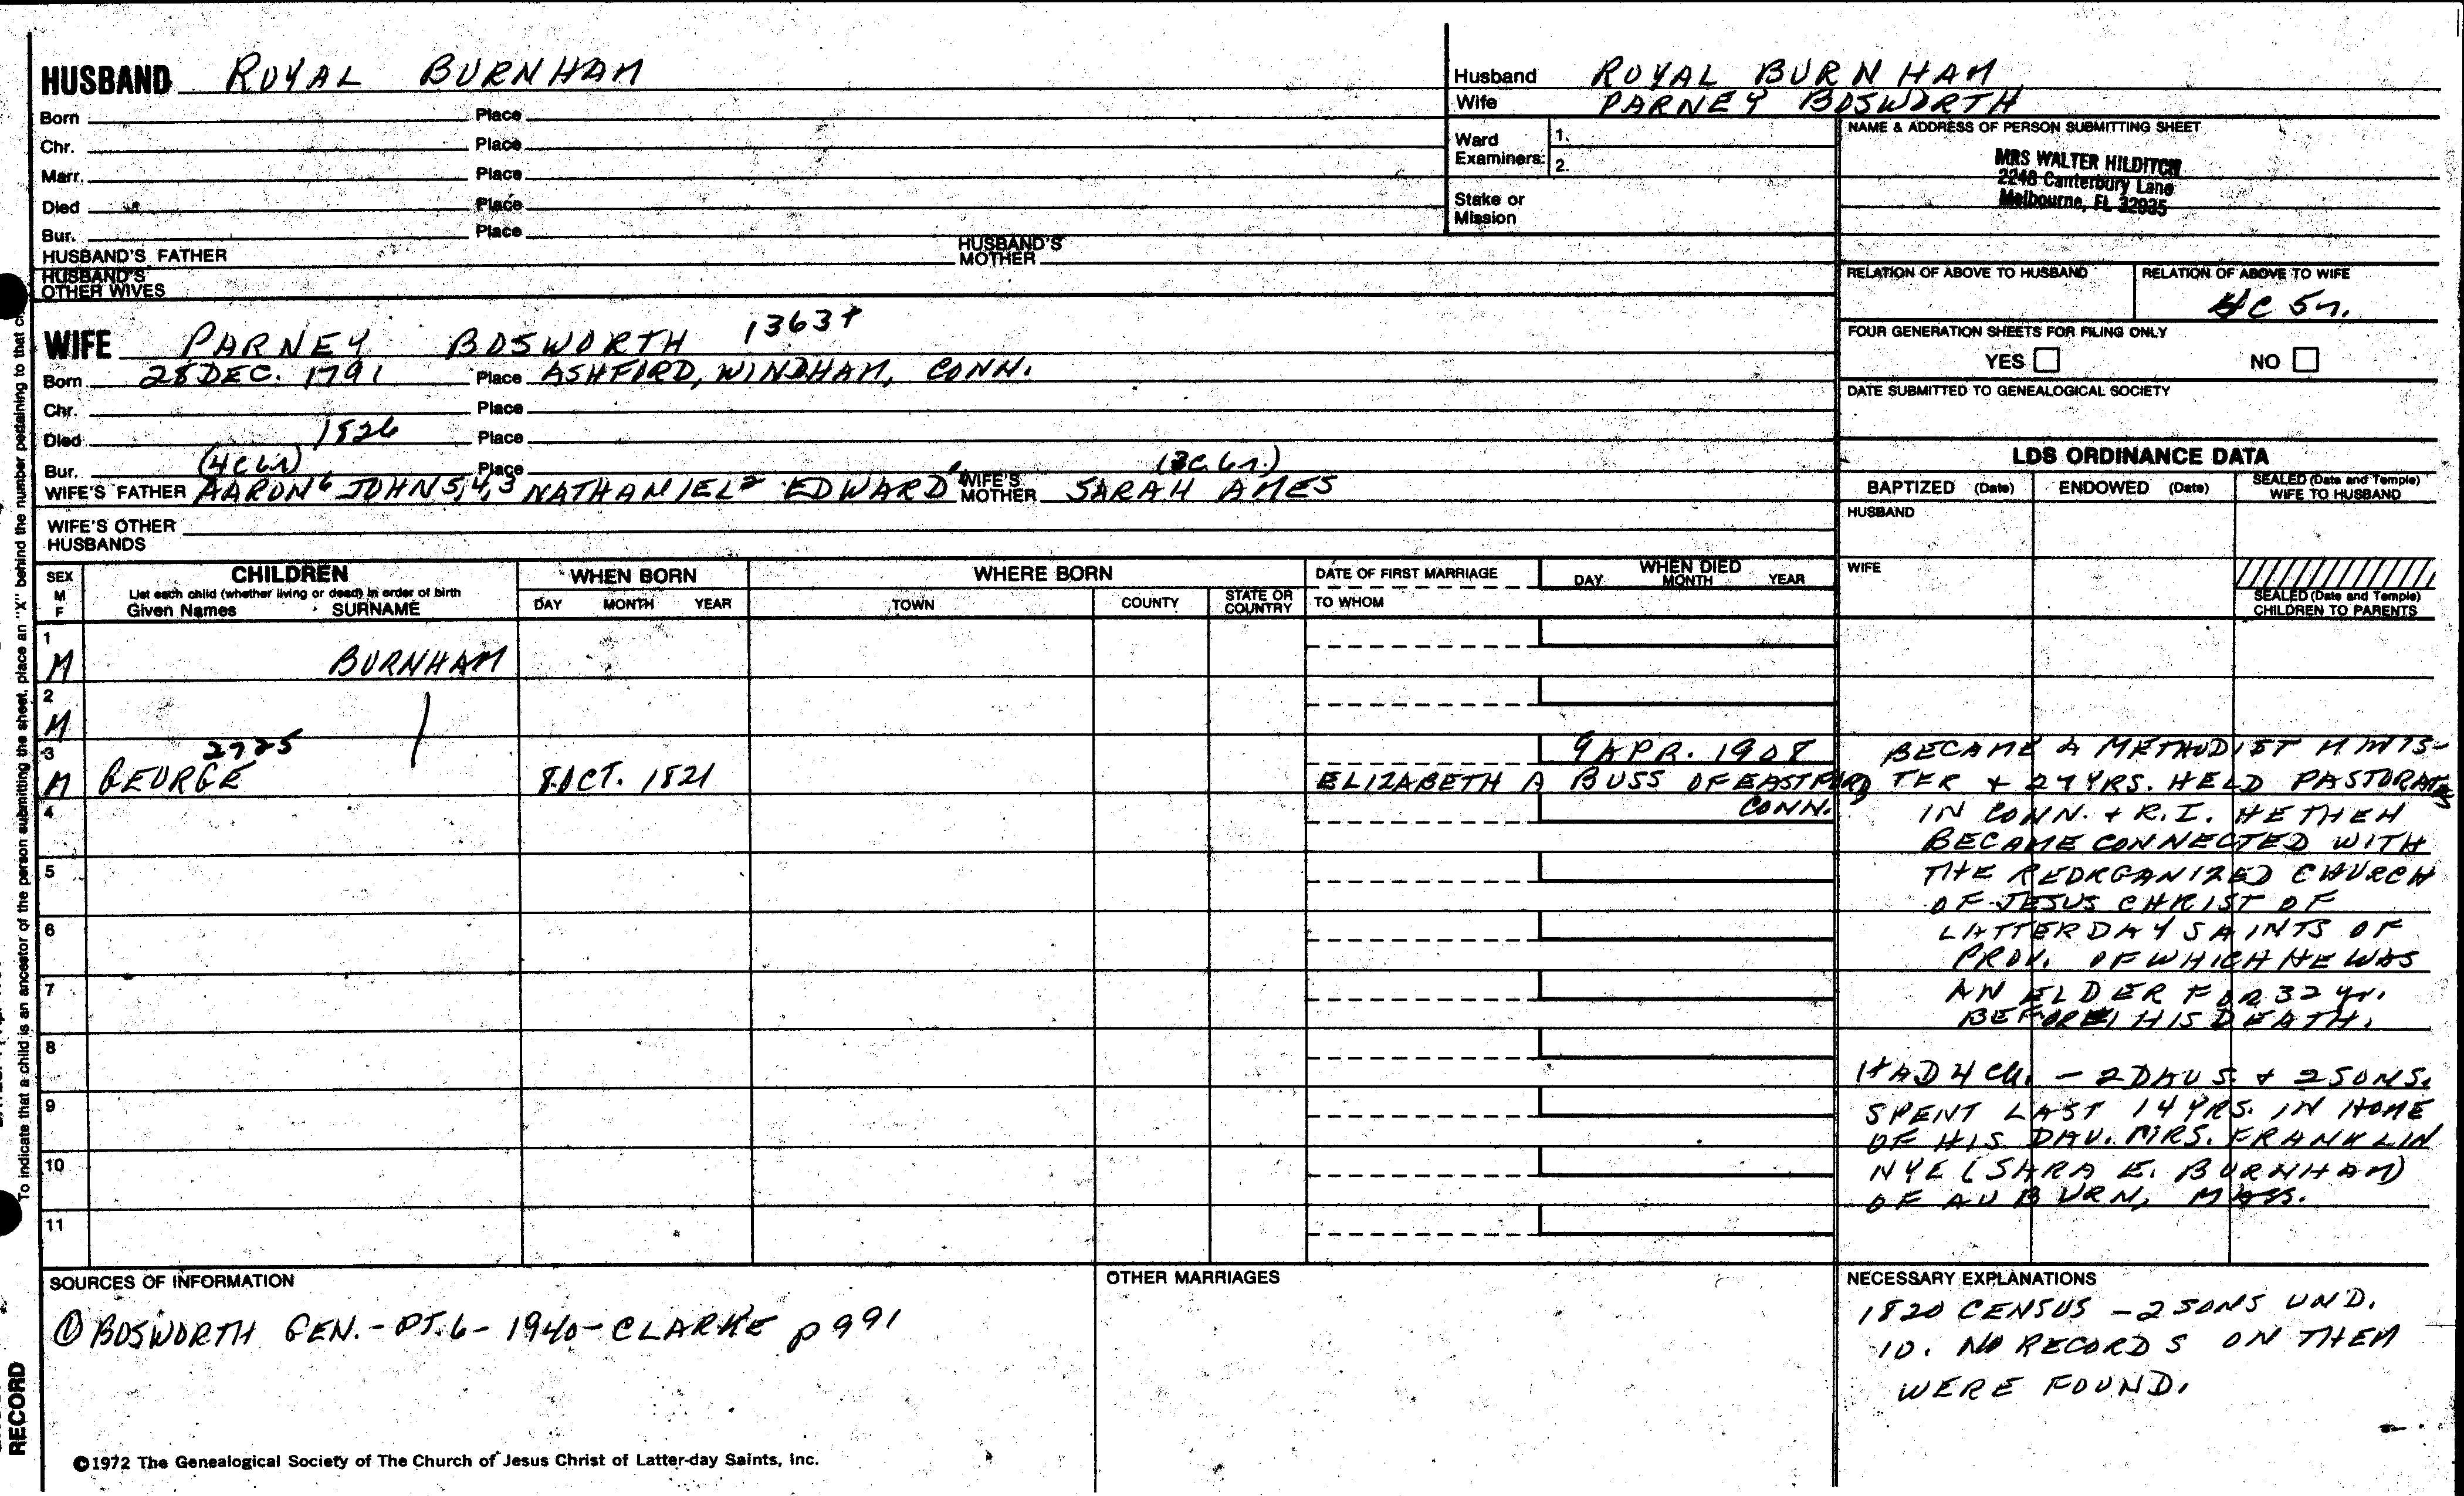 HUSBAND ROYAL BURNHAM
Born Place
Chr. Place
Marr. Place
Died Place
Bur. Place
HUSBAND'S FATHER HUSBAND'S MOTHER
HUSBAND'S OTHER WIVES
Husband ROYAL BURNHAM
Wife PARNEY BOSWORTH
Ward Examiners: 1.
2.
Stake or Mission
NAME & ADDRESS OF PERSON SUBMITTING SHEET
MRS WALTER HILDITCH
2248 Canterbury Lane
Melbourne, FL 32935
RELATION OF ABOVE TO HUSBAND RELATION OF ABOVE TO WIFE
4C 5r.
FOUR GENERATION SHEETS FOR FILING ONLY
YES NO
DATE SUBMITTED TO GENEALOGICAL SOCIETY
WIFE PARNEY BOSWORTH 1363+
Born 28 DEC. 1791 Place ASHFORD, WINDHAM, CONN.
Chr. Place
Died 1826 Place
Bur. (4C 6r) Place (3C 6r.)
WIFE'S FATHER AARON6 JOHN5,4,3 NATHANIEL2 EDWARD1 WIFE'S MOTHER SARAH AMES
WIFE'S OTHER HUSBANDS
LDS ORDINANCE DATA
BAPTIZED (Date) ENDOWED (Date) SEALED (Date and Temple) WIFE TO HUSBAND
HUSBAND
WIFE
SEALED (Date and Temple) CHILDREN TO PARENTS
SEX M F
CHILDREN
List each child (whether living or dead) in order of birth
Given Names SURNAME
WHEN BORN
DAY MONTH YEAR
WHERE BORN
TOWN COUNTY STATE OR COUNTRY
DATE OF FIRST MARRIAGE
TO WHOM
WHEN DIED
DAY MONTH YEAR
1 M BURNHAM
2 M
3 M 2725 GEORGE 8 OCT. 1821 9 APR. 1908
ELIZABETH A BUSS OF EASTFORD CONN.
4
5
6
7
8
9
10
11
BECAME A METHODIST MINIS-
TER + 27 YRS. HELD PASTORATES
IN CONN. + R.I. HE THEN
BECAME CONNECTED WITH
THE REORGANIZED CHURCH
OF JESUS CHRIST OF
LATTER DAY SAINTS OF
PROV. OF WHICH HE WAS
AN ELDER FOR 32 yr.
BEFORE HIS DEATH.
HAD 4 Ch. - 2 DAUS + 2 SONS.
SPENT LAST 14 YRS. IN HOME
OF HIS DAU. MRS. FRANKLIN
NYE (SARA E. BURNHAM)
OF AUBURN, MASS.
SOURCES OF INFORMATION
① BOSWORTH GEN. - PT. 6 - 1940 - CLARKE p 991
OTHER MARRIAGES
NECESSARY EXPLANATIONS
1820 CENSUS - 2 SONS UND.
10. NO RECORDS ON THEM
WERE FOUND.
©1972 The Genealogical Society of The Church of Jesus Christ of Latter-day Saints, Inc.
To indicate that a child is an ancestor of the person submitting the sheet, place an "X" behind the number pertaining to that
RECORD